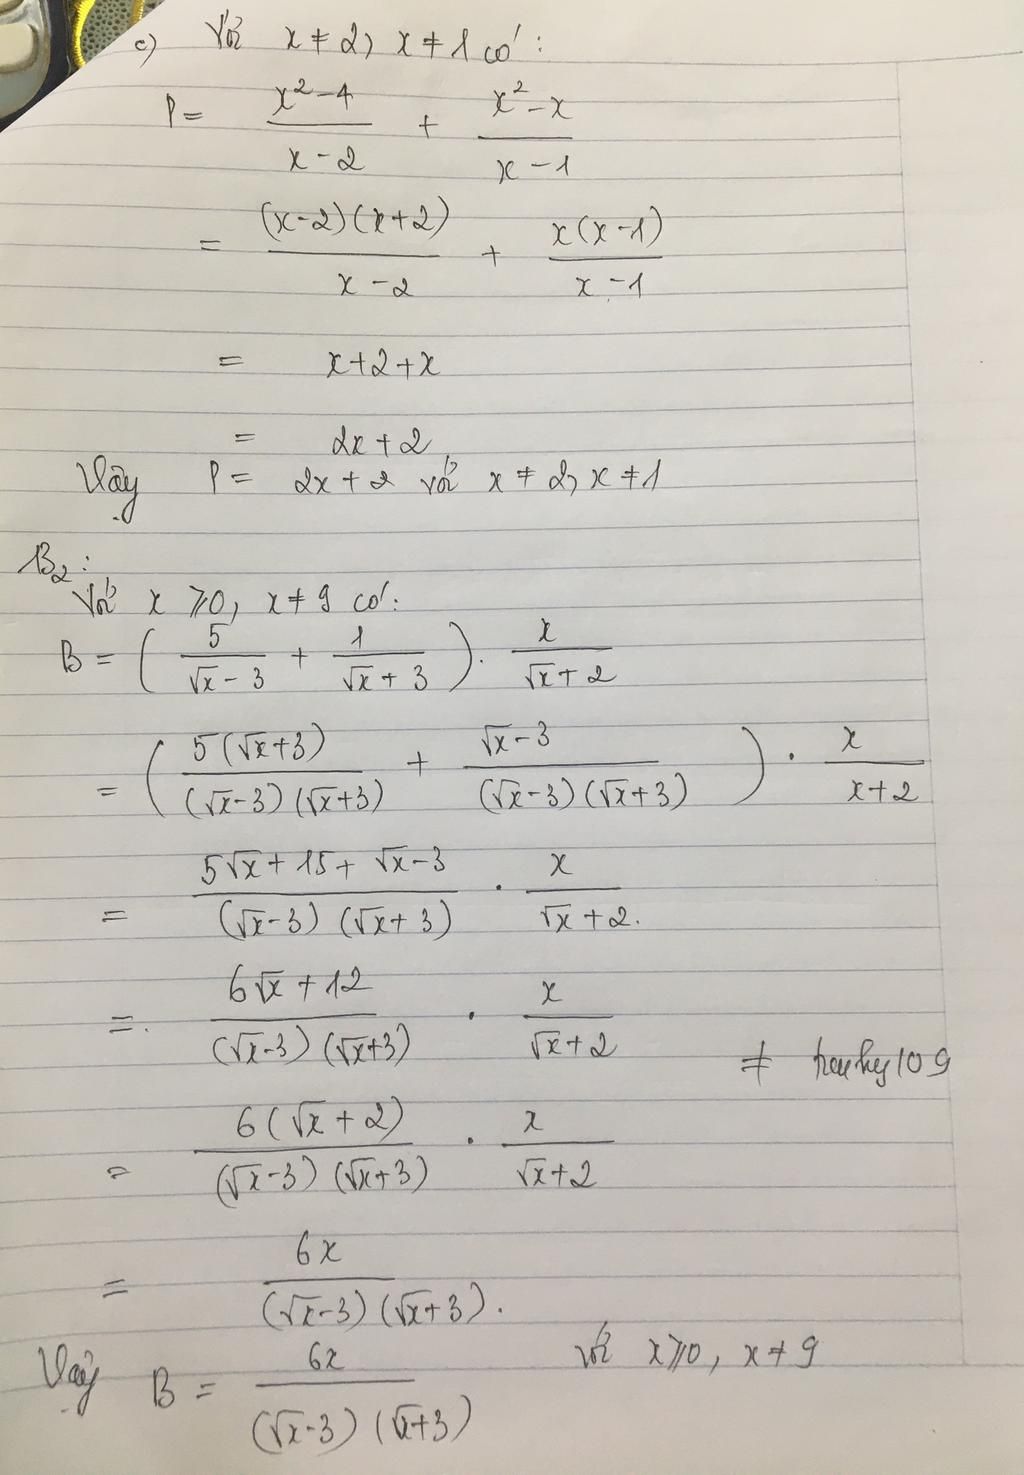 c) Với x ≠ 2, x ≠ 1 có:
P = (x² - 4)/(x - 2) + (x² - x)/(x - 1)
= ((x-2)(x+2))/(x - 2) + (x(x-1))/(x - 1)
= x + 2 + x
= 2x + 2
Vậy P = 2x + 2 với x ≠ 2, x ≠ 1
B2:
Với x ⩾ 0, x ≠ 9 có:
B = (5/(√x - 3) + 1/(√x + 3)) . x/(√x + 2)
= ((5(√x+3))/((√x-3)(√x+3)) + (√x-3)/((√x-3)(√x+3))) . x/(x+2)
= (5√x + 15 + √x - 3)/((√x-3)(√x+3)) . x/(√x + 2).
= (6√x + 12)/((√x-3)(√x+3)) . x/(√x+2)
≠
= (6(√x + 2))/((√x-3)(√x+3)) . x/(√x+2)
= 6x/((√x-3)(√x+3)).
Vậy B = 6x/((√x-3)(√x+3)) với x ⩾ 0, x ≠ 9